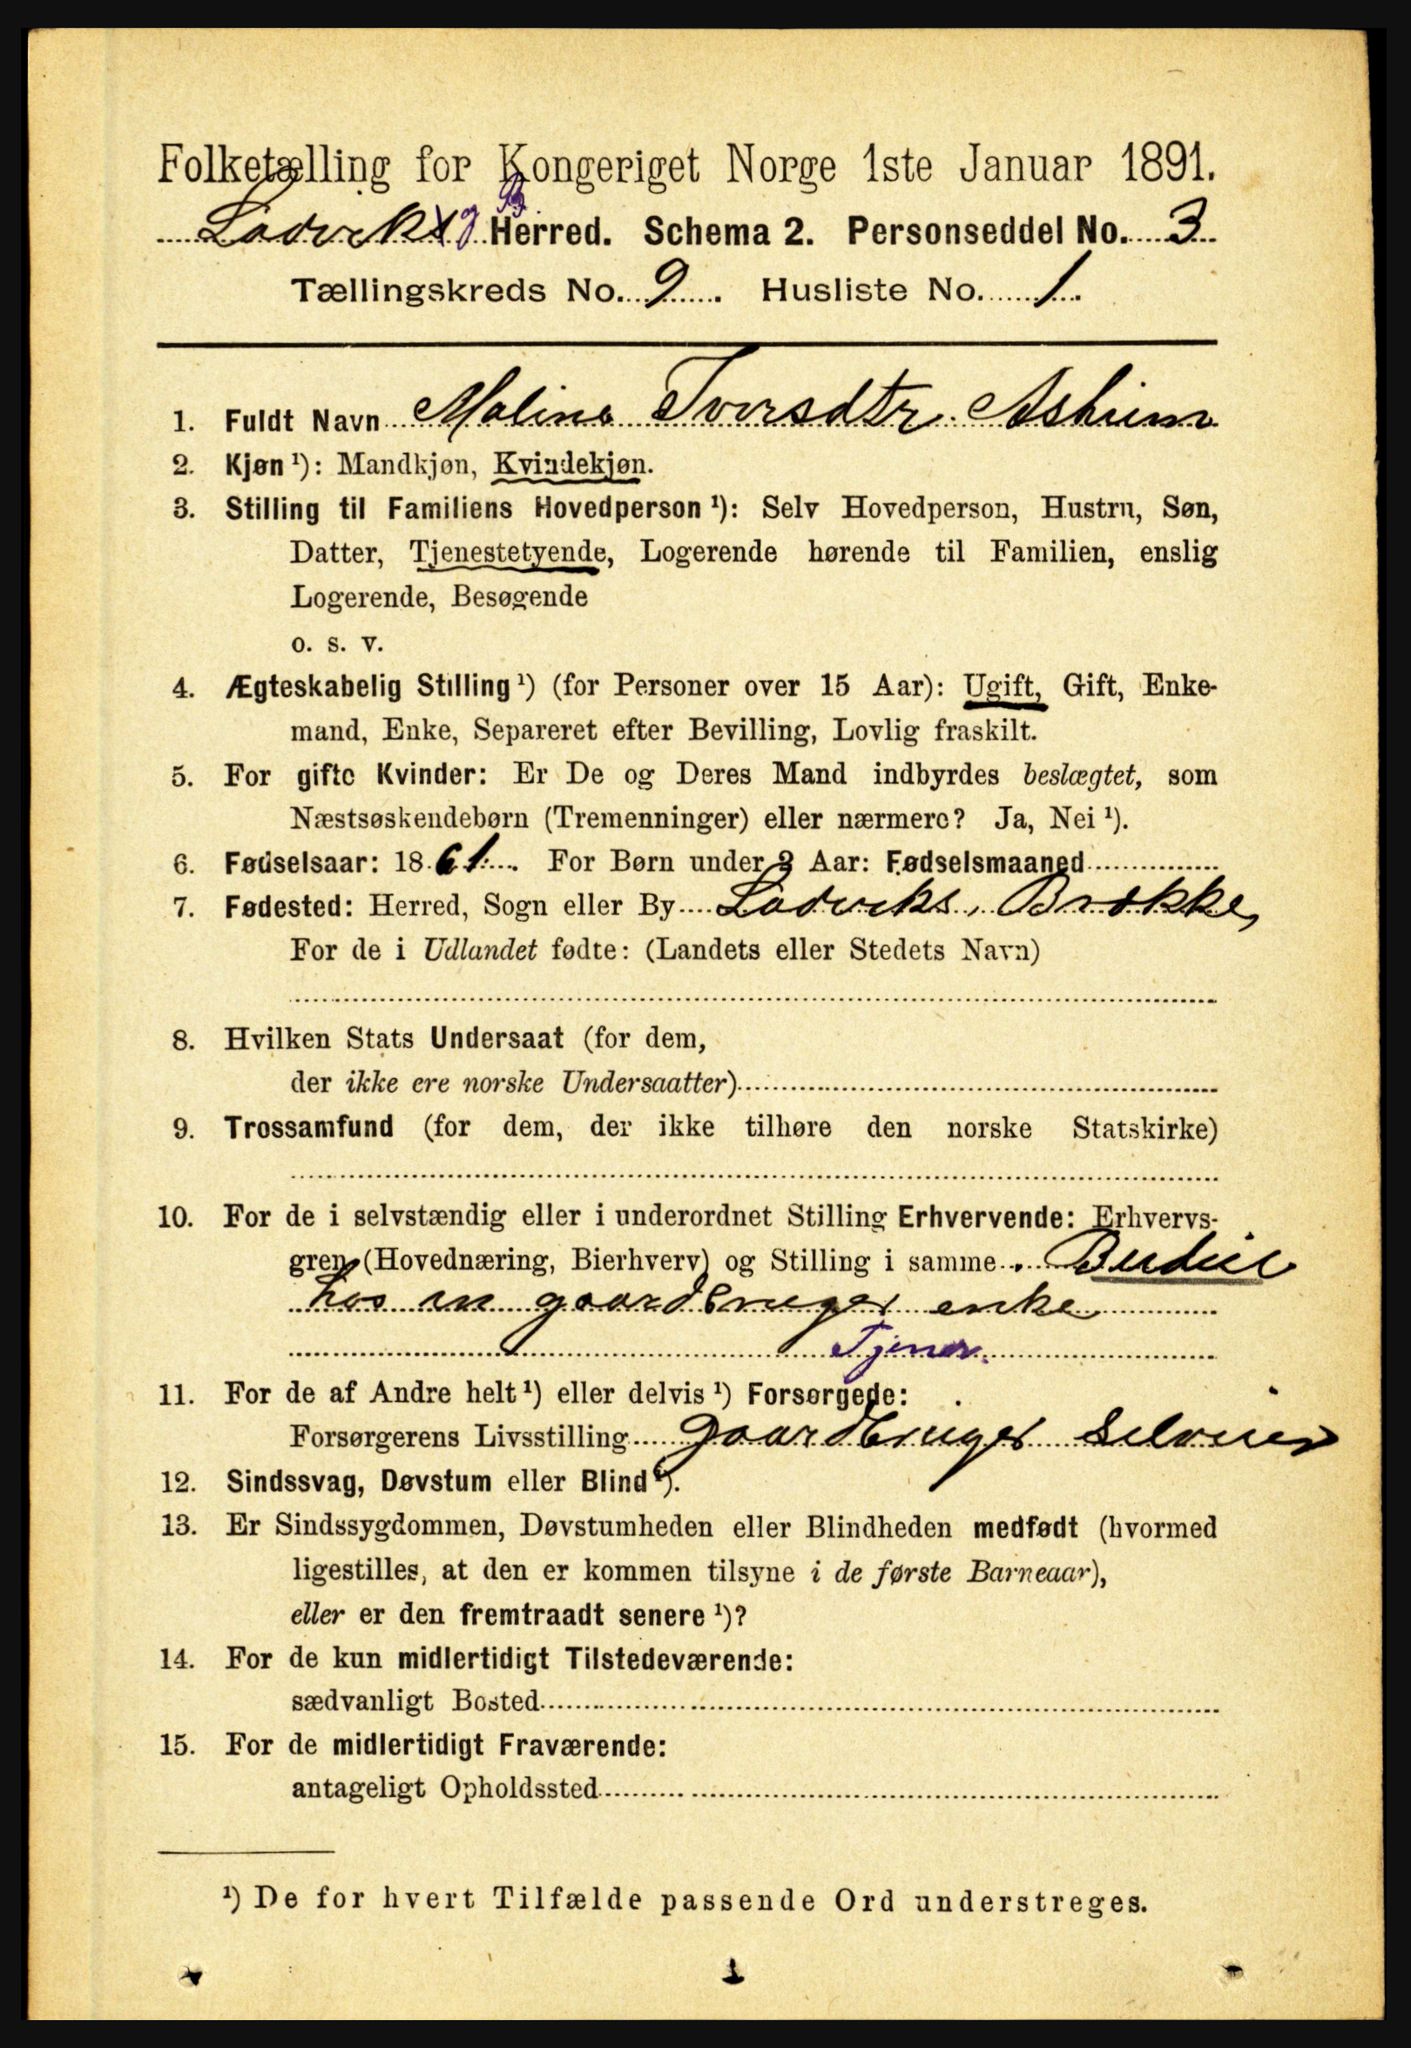 Folketælling for Kongeriget Norge 1ste Januar 1891.
Ladviks og B. Herred. Schema 2. Personseddel No. 3
Tællingskreds No. 9. Husliste No. 1.
1. Fuldt Navn Maline Iversdtr. Asheim
2. Kjøn ¹): Mandkjøn, Kvindekjøn.
3. Stilling til Familiens Hovedperson ¹): Selv Hovedperson, Hustru, Søn,
Datter, Tjenestetyende, Logerende hørende til Familien, enslig
Logerende, Besøgende
o. s. v.
4. Ægteskabelig Stilling ¹) (for Personer over 15 Aar): Ugift, Gift, Enke-
mand, Enke, Separeret efter Bevilling, Lovlig fraskilt.
5. For gifte Kvinder: Er De og Deres Mand indbyrdes beslægtet, som
Næstsøskendebørn (Tremenninger) eller nærmere? Ja, Nei ¹).
6. Fødselsaar: 1861. For Børn under 2 Aar: Fødselsmaaned
7. Fødested: Herred, Sogn eller By Ladviks, Brække,
For de i Udlandet fødte: (Landets eller Stedets Navn)
8. Hvilken Stats Undersaat (for dem,
der ikke ere norske Undersaatter)
9. Trossamfund (for dem, der ikke tilhøre den norske Statskirke)
10. For de i selvstændig eller i underordnet Stilling Erhvervende: Erhvervs-
gren (Hovednæring, Bierhverv) og Stilling i samme. Budeie
hos en gaardbruger enke
Tjener.
11. For de af Andre helt ¹) eller delvis ¹) Forsørgede:
Forsørgerens Livsstilling gaardbruger selveier
12. Sindssvag, Døvstum eller Blind ¹).
13. Er Sindssygdommen, Døvstumheden eller Blindheden medfødt (hvormed
ligestilles, at den er kommen tilsyne i de første Barneaar),
eller er den fremtraadt senere ¹)?
14. For de kun midlertidigt Tilstedeværende:
sædvanligt Bosted
15. For de midlertidigt Fraværende:
antageligt Opholdssted
¹) De for hvert Tilfælde passende Ord understreges.